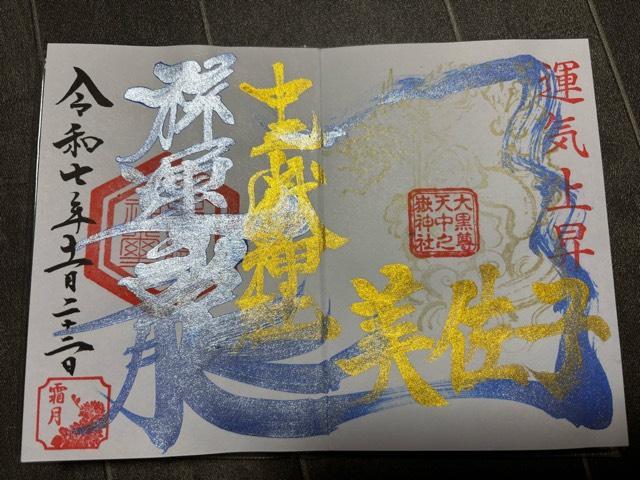 運気上昇
大黒尊
天中之
嶽神社
美佐子
中之嶽神社
令和七年十一月二十二日
霜月